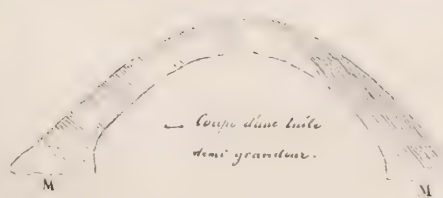 Coupe d'une tuile
demi grandeur.
M M